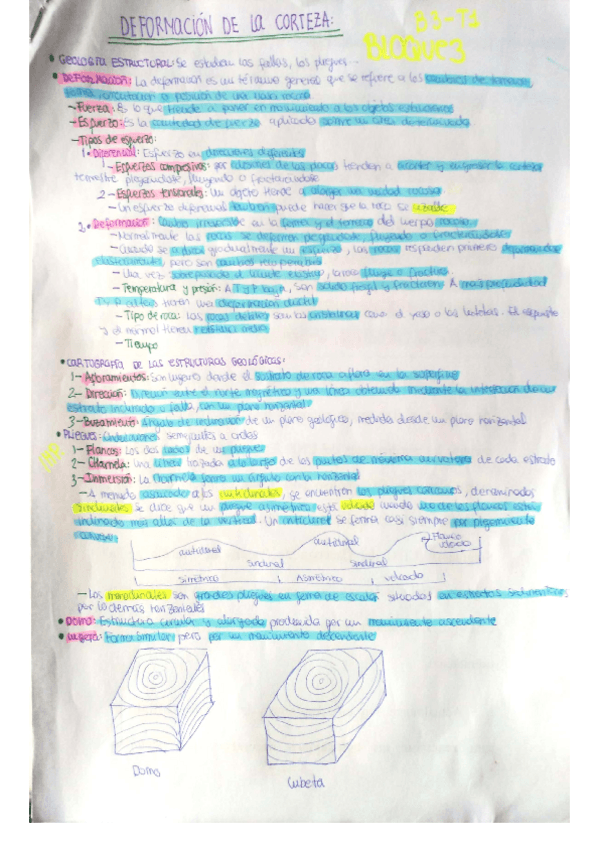 DEFORMACIÓN DE LA CORTEZA:
B3-T1
BLOQUE 3
• GEOLOGÍA ESTRUCTURAL: Se estudian las fallas, los pliegues...
• DEFORMACIÓN: La deformación es un término general que se refiere a los cambios de tamaño,
forma, orientación o posición de una masa rocosa
- Fuerza: Es lo que tiende a poner en movimiento a los objetos estacionarios
- Esfuerzo: Es la cantidad de fuerza aplicada sobre un área determinada
- Tipos de esfuerzo:
1. Diferencial: Esfuerzo en direcciones diferentes
1 - Esfuerzos compresivos: por colisiones de las placas tienden a acortar y engrosar la corteza
terrestre plegándose, fluyendo o fracturándose
2 - Esfuerzos tensionales: Un objeto tiende a alargar una unidad rocosa
- Un esfuerzo diferencial también puede hacer que la roca se cizalle
2. Deformación: Cambio irreversible en la forma y el tamaño del cuerpo rocoso
- Normalmente las rocas se deforman plegándose, fluyendo o fracturándose
- Cuando se aplica gradualmente un esfuerzo, las rocas responden primero deformándose
elásticamente, pero son cambios recuperables
- Una vez sobrepasado el límite elástico, la roca fluye o fractura
- Temperatura y presión: A T y P bajas, son sólido frágil y fracturan. A más profundidad
T y P altas tienen una deformación dúctil
- Tipo de roca: Las rocas débiles son las cristalinas como el yeso o las lutitas. El
y el normal tienen
- Tiempo
• CARTOGRAFÍA DE LAS ESTRUCTURAS GEOLÓGICAS:
1 - Afloramientos: Son lugares donde el sustrato de roca aflora en la superficie
2 - Dirección: Ángulo entre el norte magnético y una línea obtenida mediante la intersección de un
estrato inclinado o falla, con un plano horizontal
3 - Buzamiento: Ángulo de inclinación de un plano geológico, medida desde un plano horizontal
• PLIEGUES: Ondulaciones semejantes a ondas
1 - Flancos: Los dos lados de un pliegue
2 - Charnela: Una línea trazada a lo largo de los puntos de máxima curvatura de cada estrato
3 - Inmersión: La charnela forma un ángulo con la horizontal
- A menudo asociado a los anticlinales, se encuentran los pliegues cóncavos, denominados
sinclinales se dice que un pliegue asimétrico está volcado cuando uno de los flancos está
inclinado más allá de la vertical. Un anticlinal se forma casi siempre por plegamiento
anticlinal
sinclinal
anticlinal
sinclinal
Flanco volcado
Simétrico
Asimétrico
volcado
- Los monoclinales son grandes pliegues en forma de escalón situados en estratos sedimentarios
por lo demás horizontales
• DOMO: Estructura circular y alargada producida por un movimiento ascendente
• CUBETA: Forma similar pero por un movimiento descendente
Domo
Cubeta